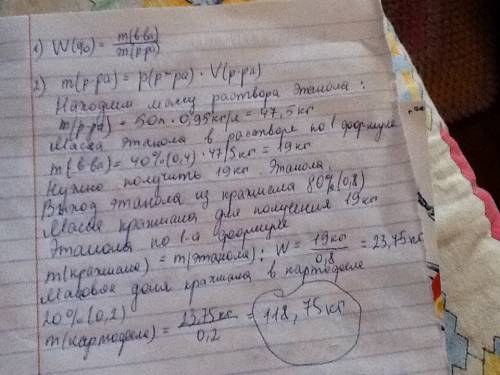 1) W(%) = m(в-ва) / m(р-ра)
2) m(р-ра) = p(р-ра) · V(р-ра)
Находим массу раствора этанола:
m(р-ра) = 50л · 0,95кг/л = 47,5кг
Масса этанола в растворе по 1 формуле
m(в-ва) = 40%(0,4) · 47,5кг = 19кг
Нужно получить 19кг этанола
Выход этанола из крахмала 80%(0,8)
Масса крахмала для получения 19кг
Этанола по 1-й формуле
m(крахмала) = m(этанола) : W = 19кг / 0,8 = 23,75кг
Массовая доля крахмала в картофеле
20%(0,2)
m(картофеля) = 23,75кг / 0,2 = 118,75кг